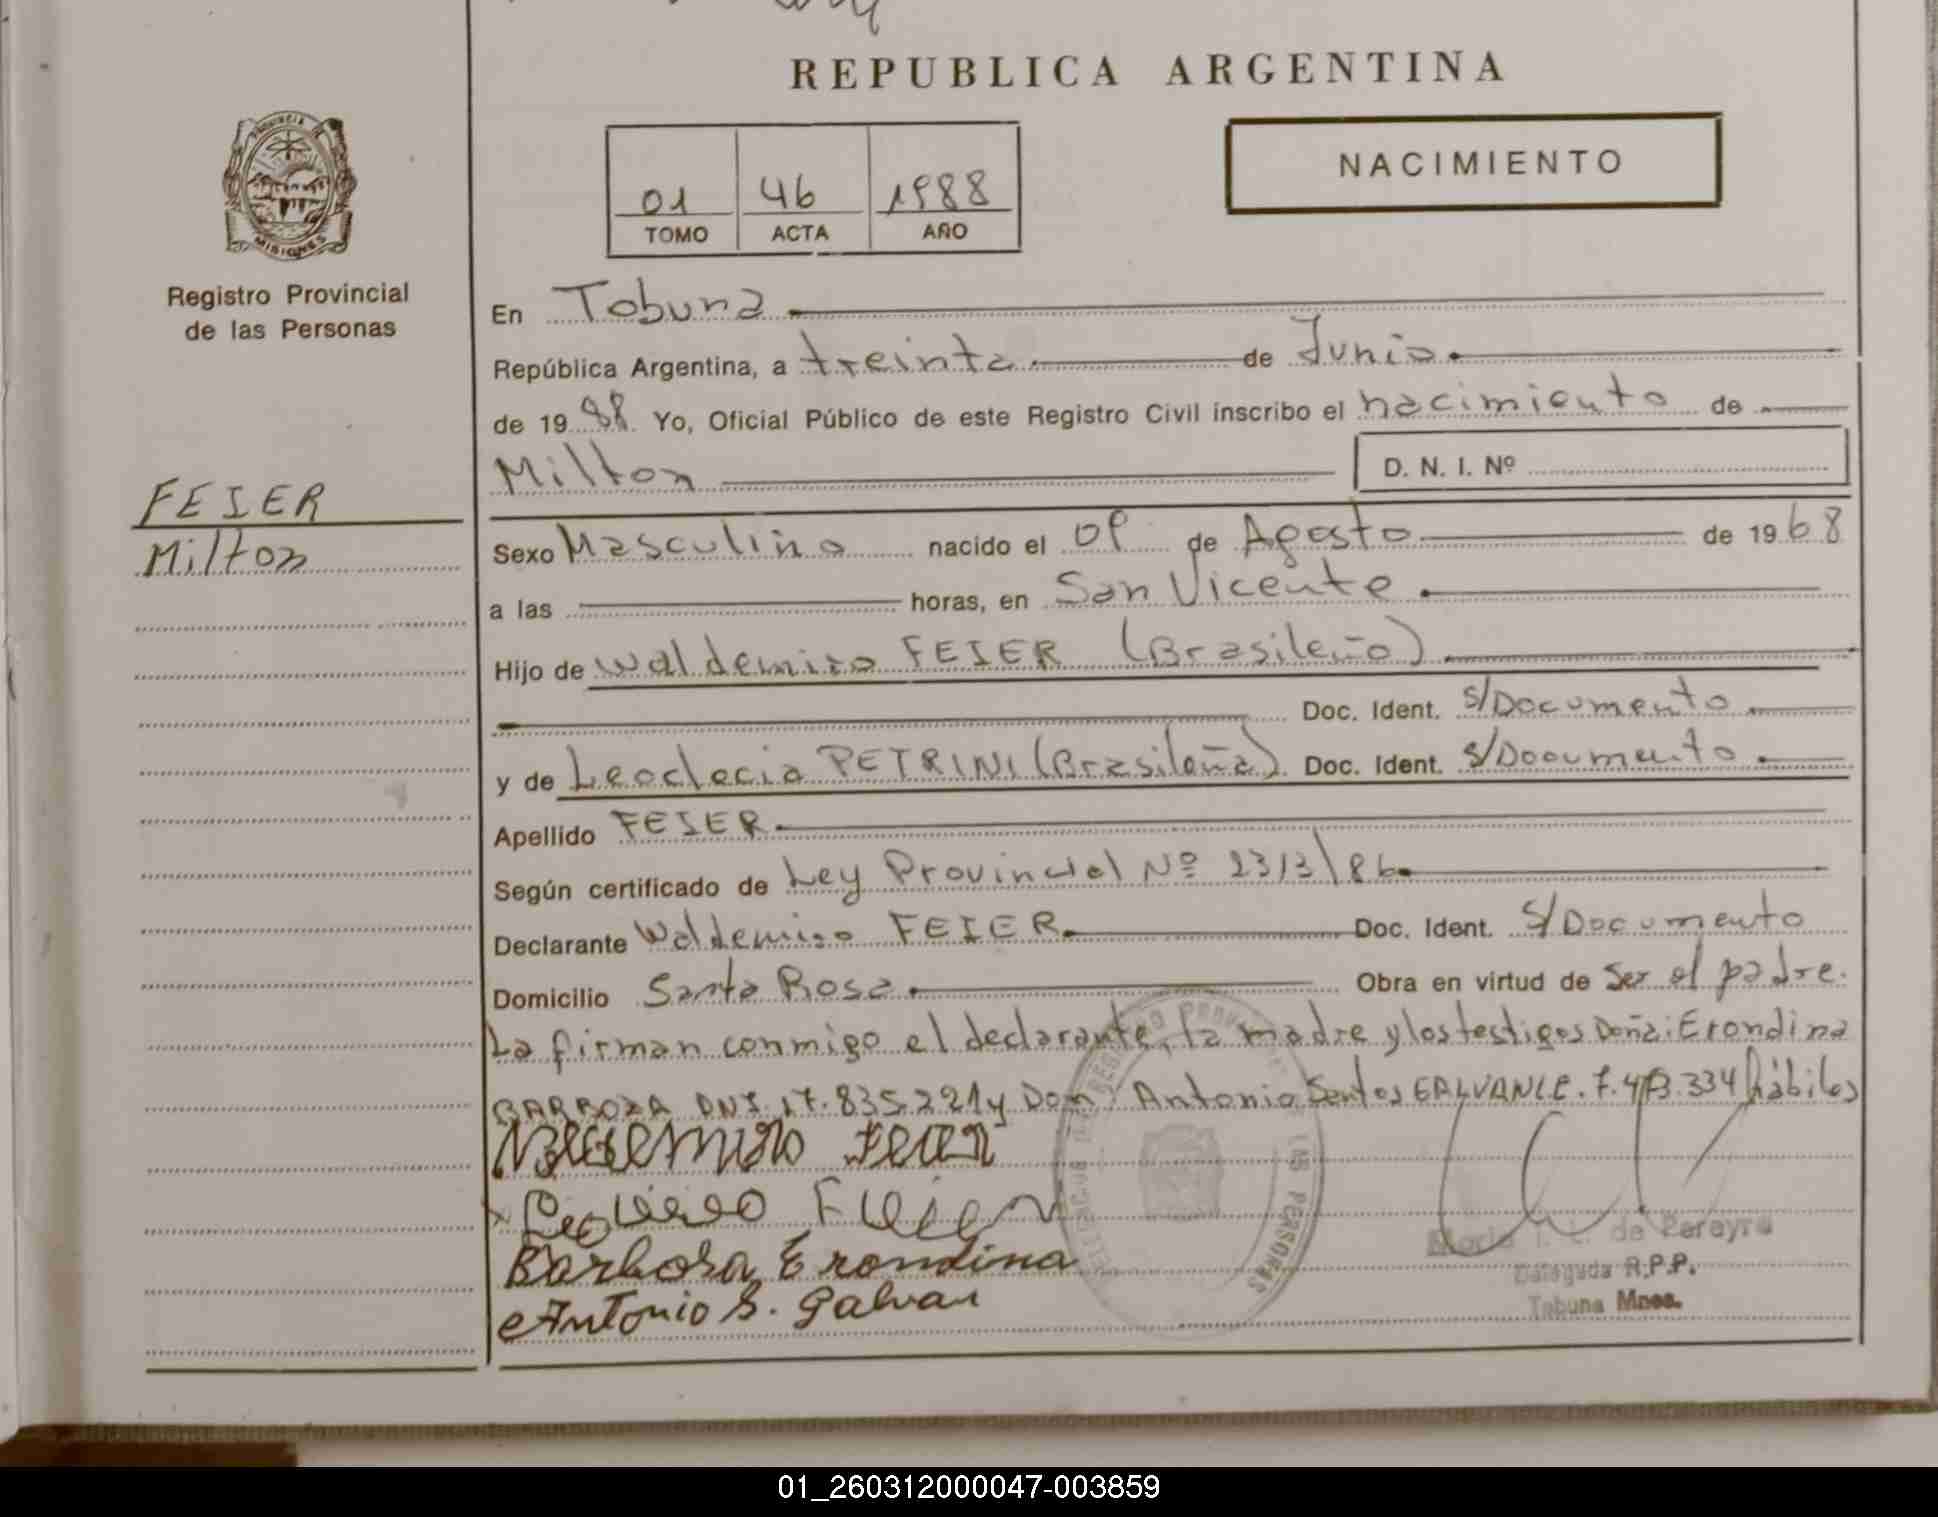 REPUBLICA ARGENTINA
PROVINCIA DE
MISIONES
01 46 1988
TOMO ACTA AÑO
NACIMIENTO
Registro Provincial
de las Personas
FEIER
Milton
En Tobuna
República Argentina, a treinta de Junio
de 19 88 Yo, Oficial Público de este Registro Civil inscribo el nacimiento de
Milton D. N. I. Nº
Sexo Masculino nacido el 09 de Agosto de 19 68
a las horas, en San Vicente
Hijo de Waldemiro FEIER (Brasileño)
Doc. Ident. S/Documento
y de Leoclecia PETRINI (Brasileña). Doc. Ident. S/Documento
Apellido FEIER
Según certificado de Ley Provincial Nº 2313/86
Declarante Waldemiro FEIER Doc. Ident. S/Documento
Domicilio Santa Rosa Obra en virtud de Ser el padre.
La firman conmigo el declarante, la madre y los testigos Doña: Erondina
BARBOZA DNI 17.835.221 y Don Antonio Santos GALVAN LE. 7.473.334 hábiles
Feier
Barbosa Erondina
Antonio S. Galvan
de Pereyra
Delegada R.P.P.
Tobuna Mnes.
01_260312000047-003859